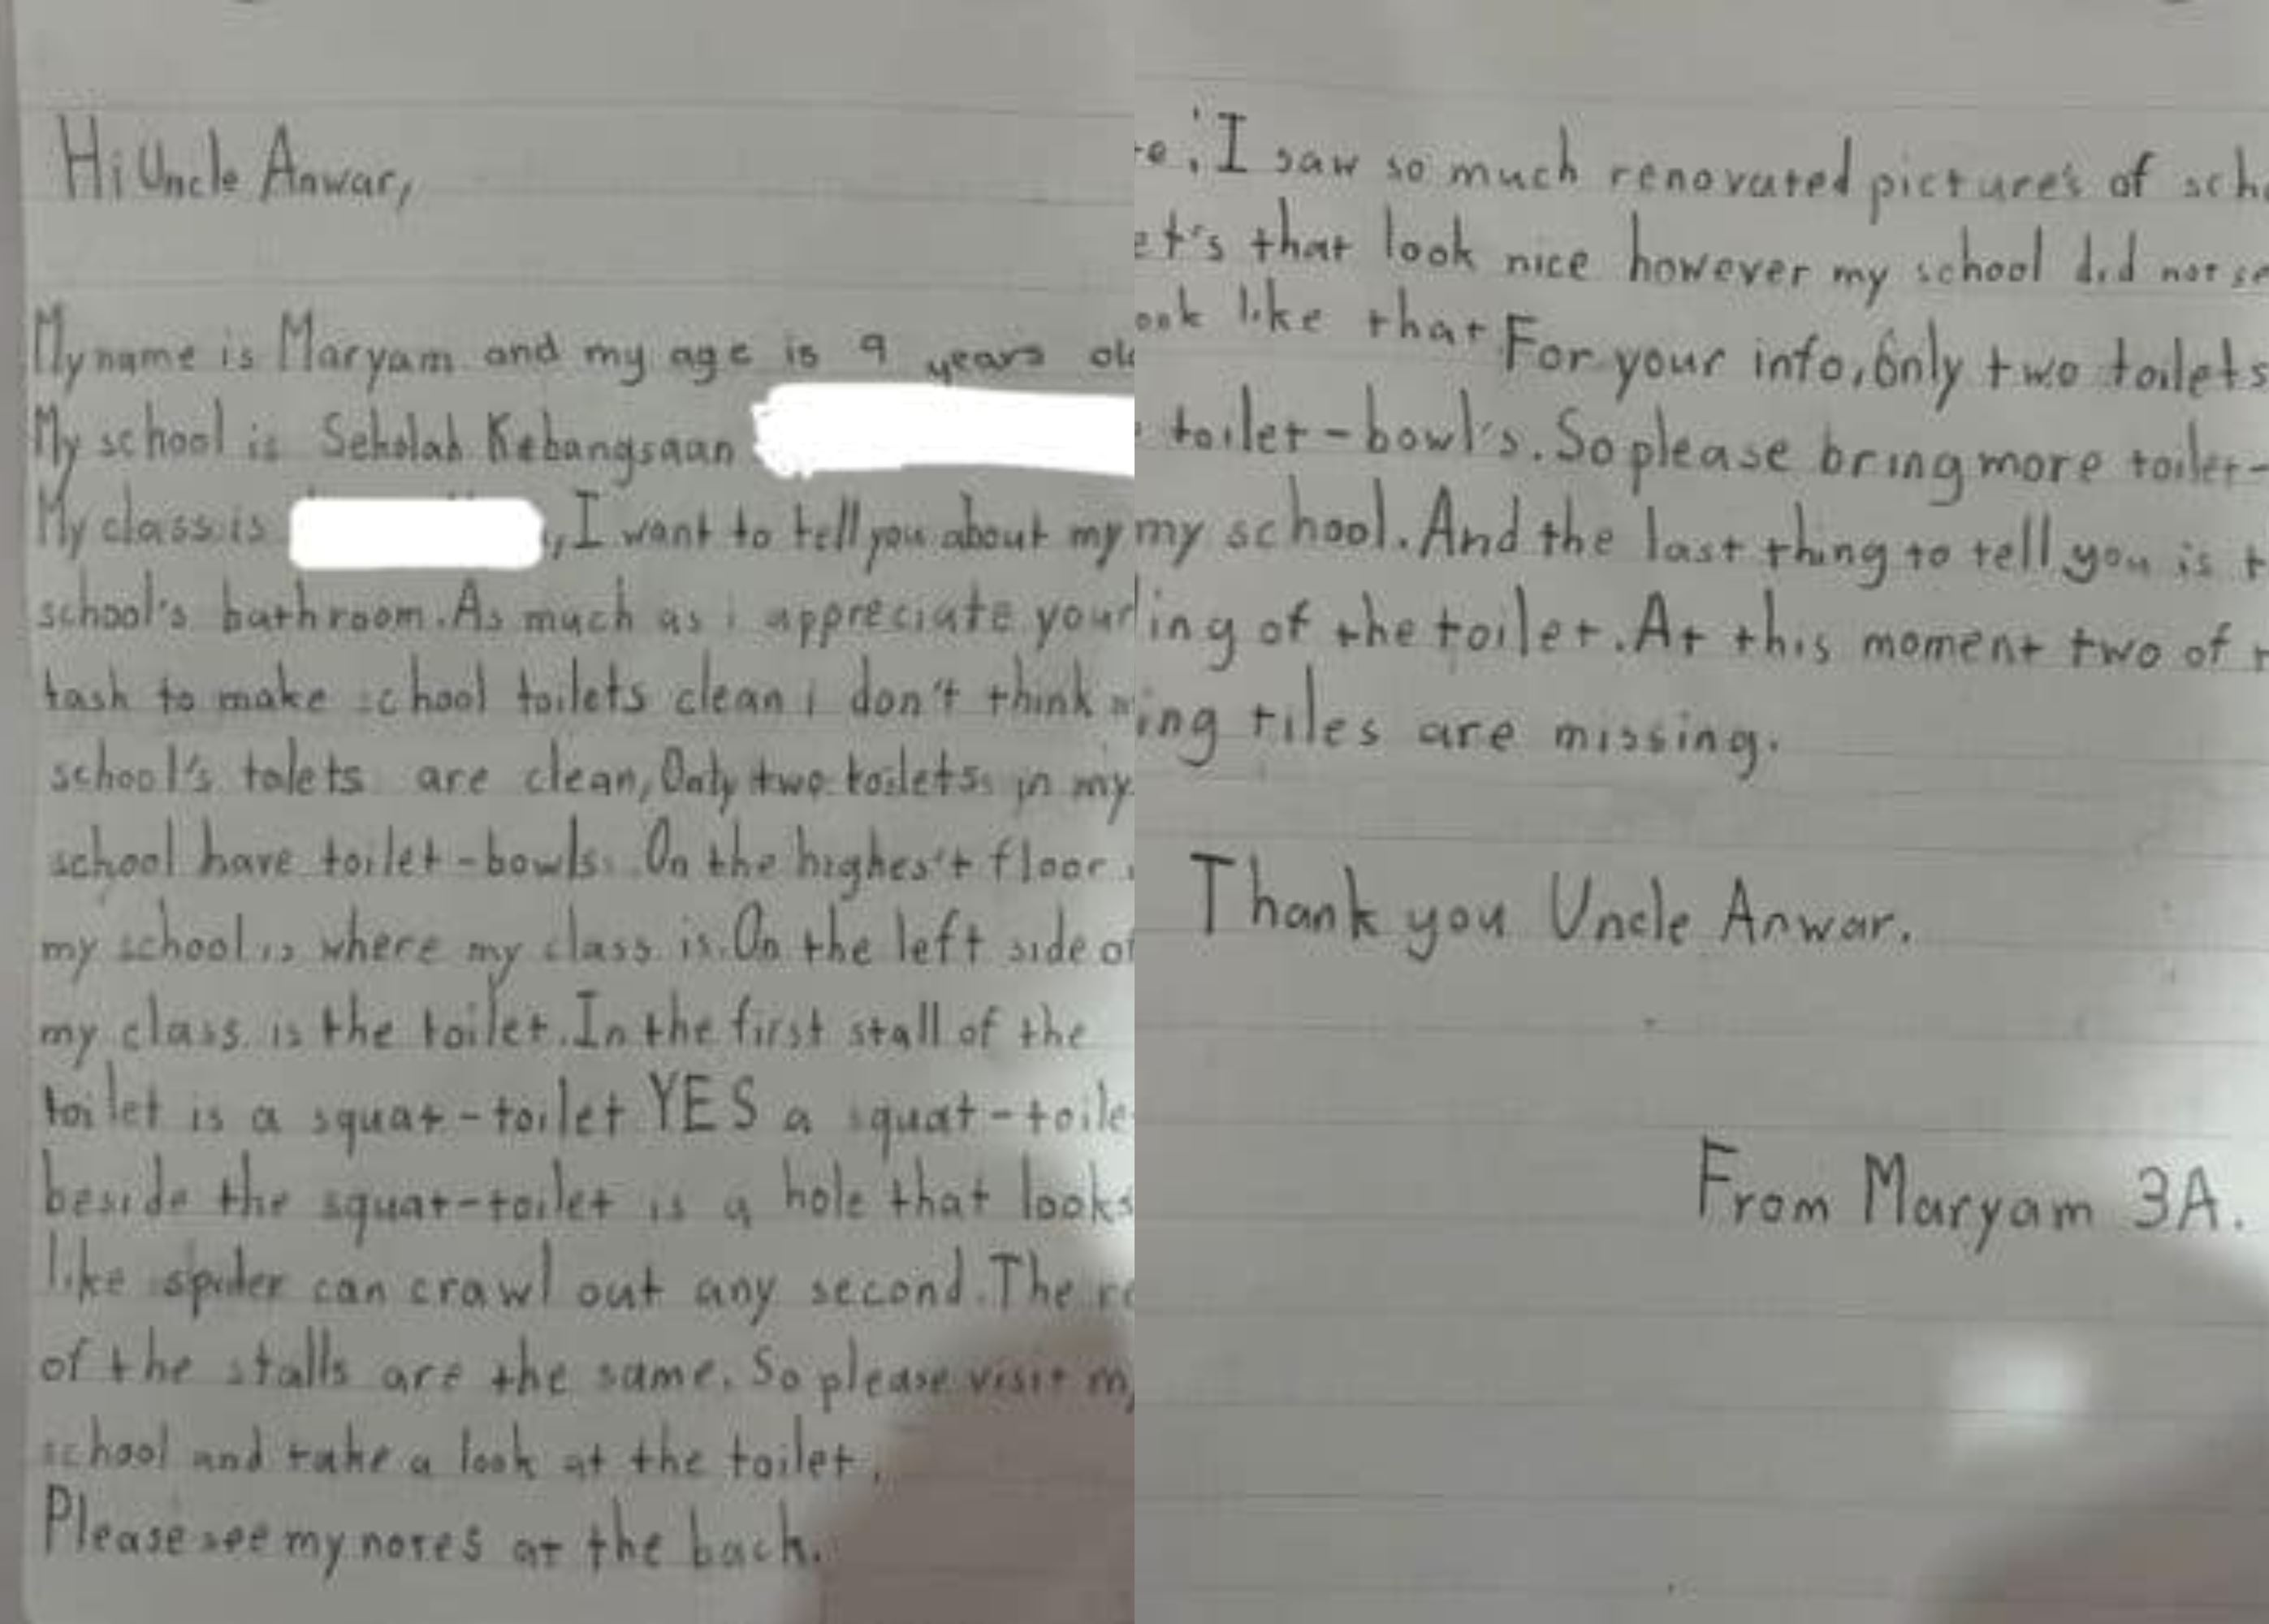 Hi Uncle Anwar,
My name is Maryam and my age is 9 years old
My school is Sekolah Kebangsaan
My class is , I want to tell you about my
school's bathroom. As much as i appreciate your
task to make school toilets clean i don't think
school's tolets are clean, Only two toilets in my
school have toilet-bowls. On the highes't floor
my school is where my class is. On the left side of
my class is the toilet. In the first stall of the
toilet is a squat-toilet YES a squat-toile
beside the squat-toilet is a hole that looks
like spider can crawl out any second. The
of the stalls are the same. So please visit my
school and take a look at the toilet.
Please see my notes at the back.
I saw so much renovated picture's of sch
et's that look nice however my school did not se
ook like that For your info, only two toilets
toilet-bowl's. So please bring more toilet-
my school. And the last thing to tell you is t
ing of the toilet. At this moment two of
ing tiles are missing.
Thank you Uncle Anwar.
From Maryam 3A.